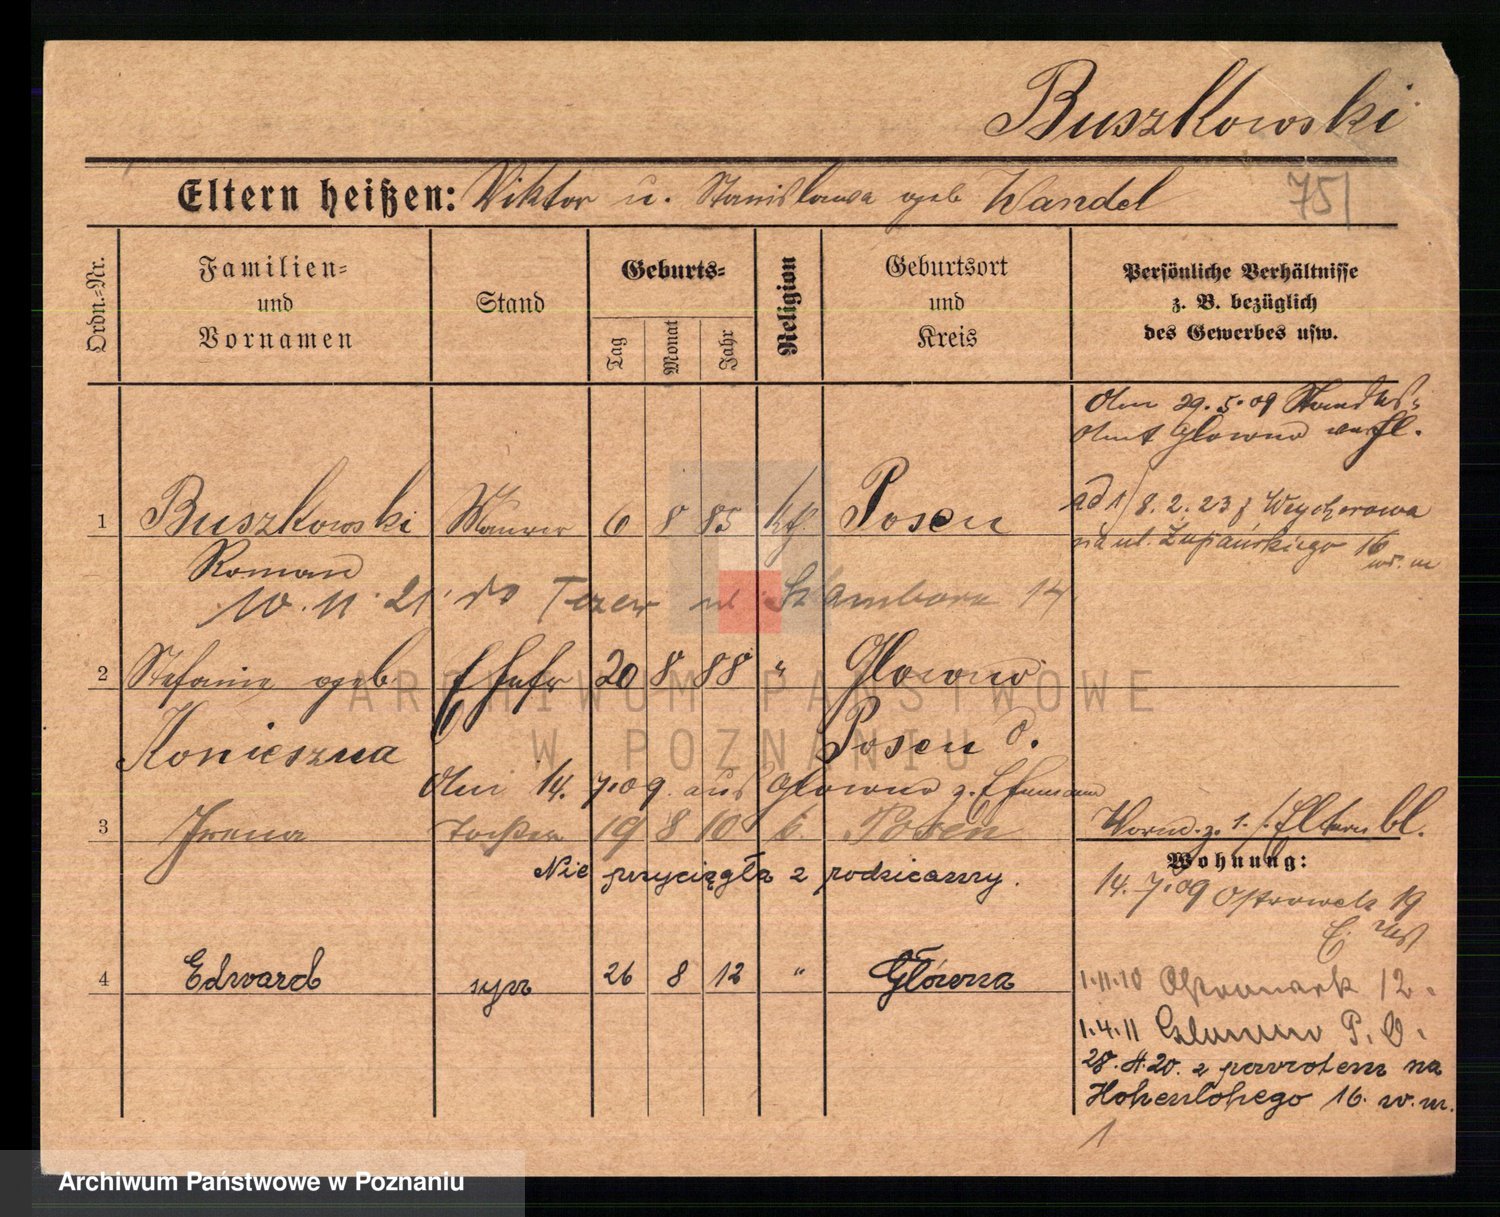 Buszkowski
Eltern heißen: Viktor u. Stanislawa geb Wandel
751
Ordn.-Nr.
Familien- und Vornamen
Stand
Geburts-
Tag
Monat
Jahr
Religion
Geburtsort und Kreis
Persönliche Verhältnisse z. B. bezüglich des Gewerbes usw.
Am 29.5.09 Standes-
amt Glowno verhl.
1 Buszkowski Maurer 6 8 85 kth. Posen
ad 1/ 8.2.23 z Wejherowa
na ul. Żupańskiego 16
w. m
Roman
10.11.21. do Tczew ul. Sambora 14
2 Stefanie geb. Ehefr 20 8 88 " Glowno
Konieszna Posen O.
Am 14.7.09 aus Glowno z. Ehemann
3 Irena Tochter 19 8 10 k. Posen
Nie przyciągła z rodzicamy.
Vorm. z. 1. f. Eltern bl.
Wohnung:
14.7.09 Ostrowek 19
4 Edward syn 26 8 12 " Główna
1.11.10 Ostrowek 12.
1.4.11 Glowno P. O.
28.4.20. z powrotem na
Hohenlohego 16. w. m.
1
ARCHIWUM PAŃSTWOWE
W POZNANIU
Archiwum Państwowe w Poznaniu